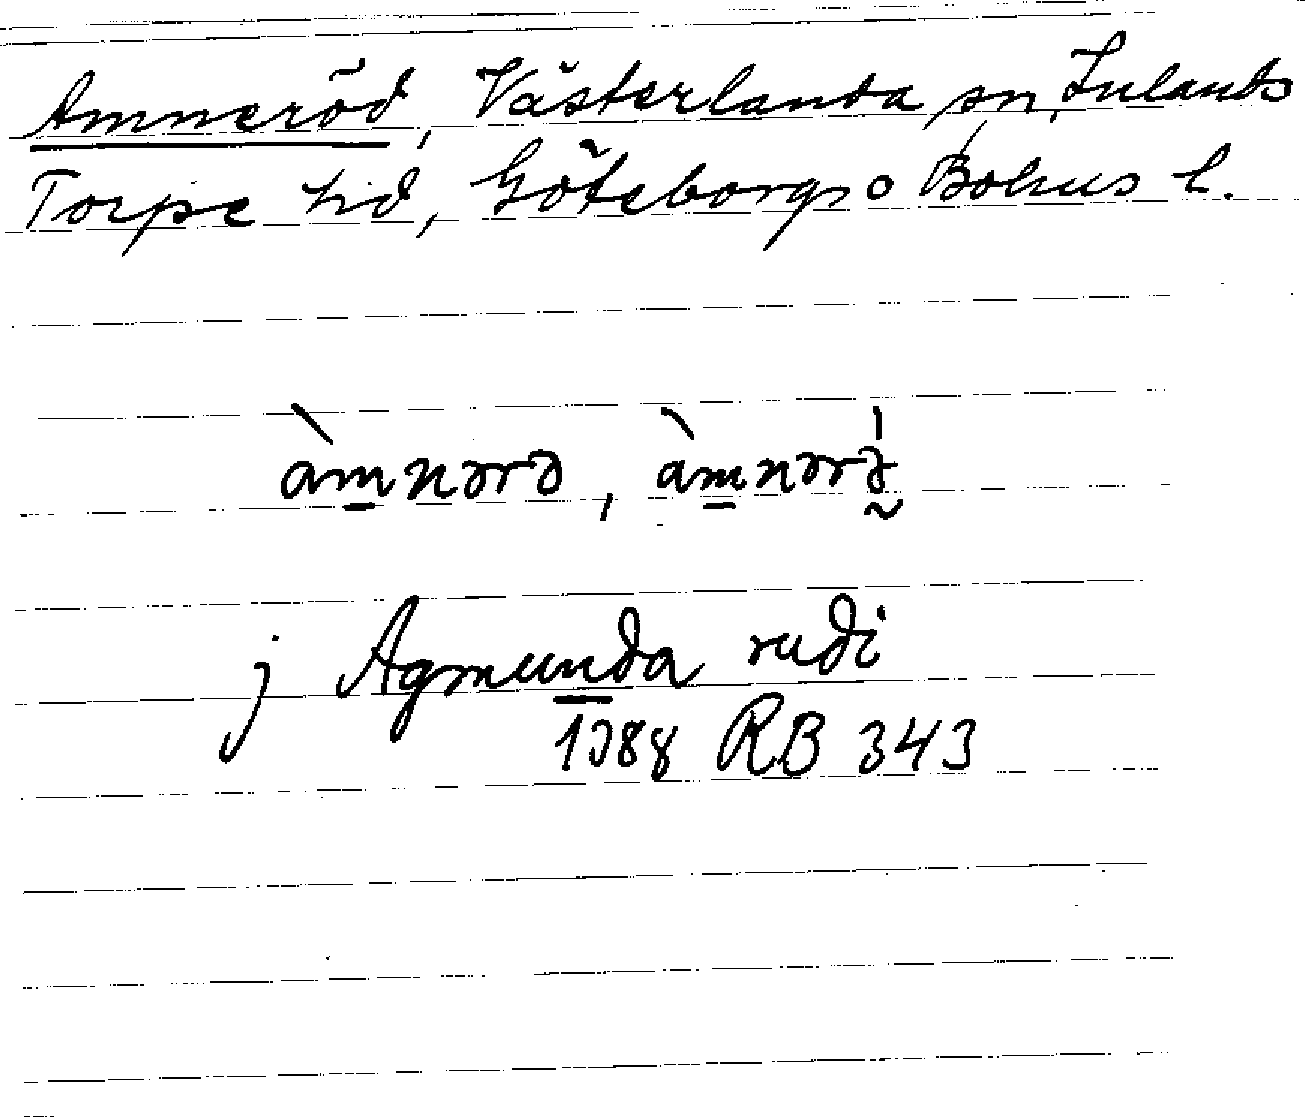 Amneröd, Västerlanda sn, Inlands
Torpe hd, Göteborgs o Bohus l.
àmnərə, àmnərə̰
j Agmunda rudi
1388 RB 343